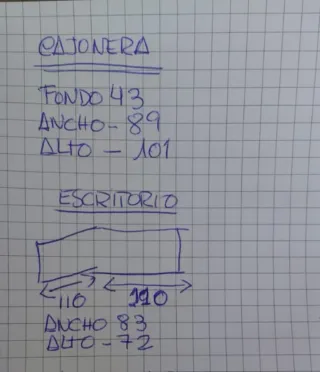 CAJONERA
FONDO 43
ANCHO - 89
ALTO - 101
ESCRITORIO
110 110
ANCHO 83
ALTO - 72